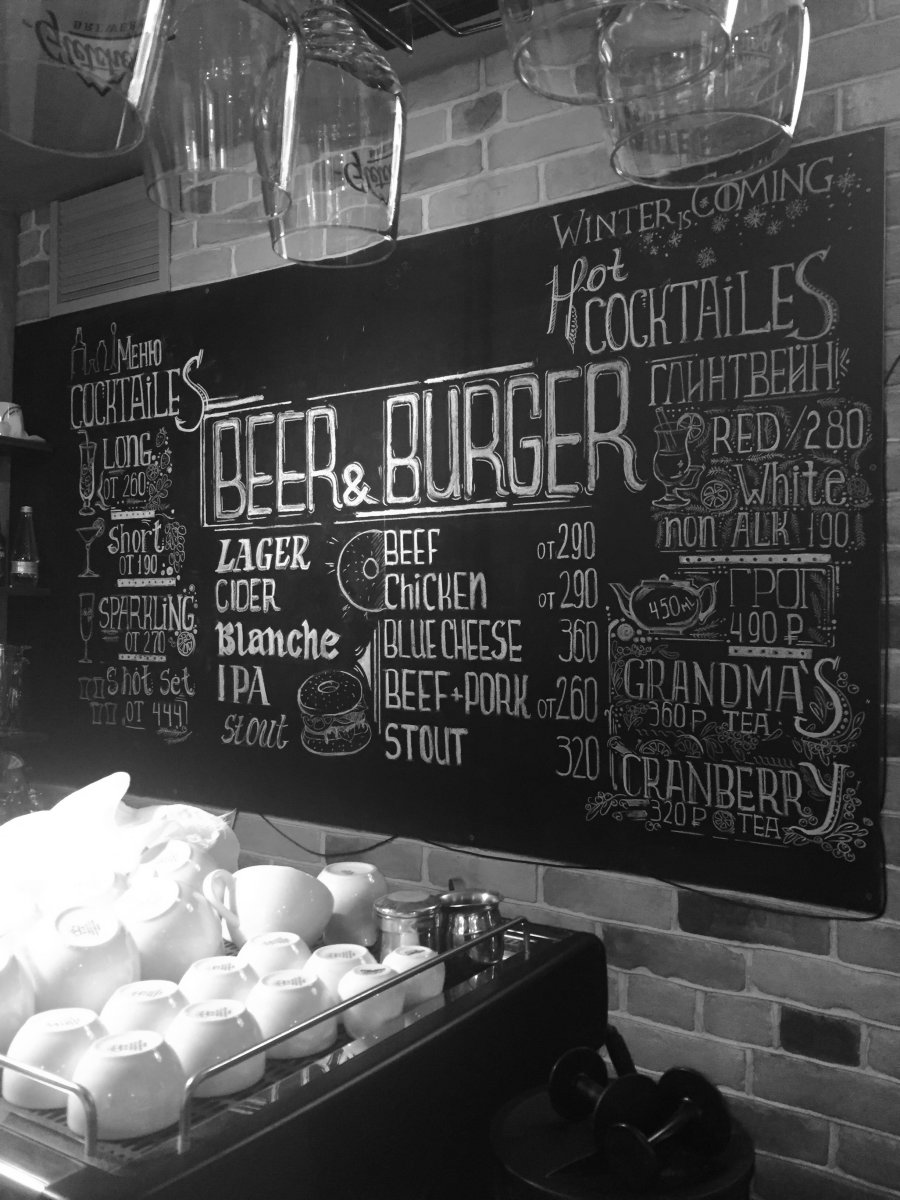 WINTER IS COMING
Hot
COCKTAiLES
ГЛИНТВЕЙН
RED/280
White
non ALK 190.
450ML
ГРОГ
490 ₽
GRANDMA'S
360 ₽ TEA
CRANBERRY
320 ₽ TEA
Меню
COCKTAiLES
LONG
ОТ 260
Short
ОТ 190
SPARKLiNG
ОТ 270
Shot Set
ОТ 444
BEER & BURGER
LAGER
CIDER
Blanche
IPA
Stout
BEEF ОТ 290
CHiCKEN ОТ 290
BLUE CHEESE 360
BEEF+PORK ОТ 260
STOUT 320